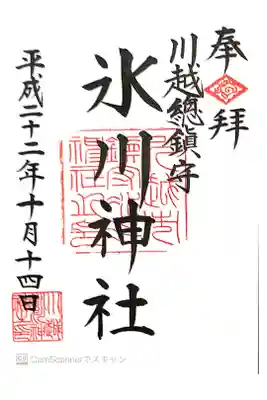 奉拝
川越總鎮守
氷川神社
平成二十二年十月十四日
CS CamScannerでスキャン